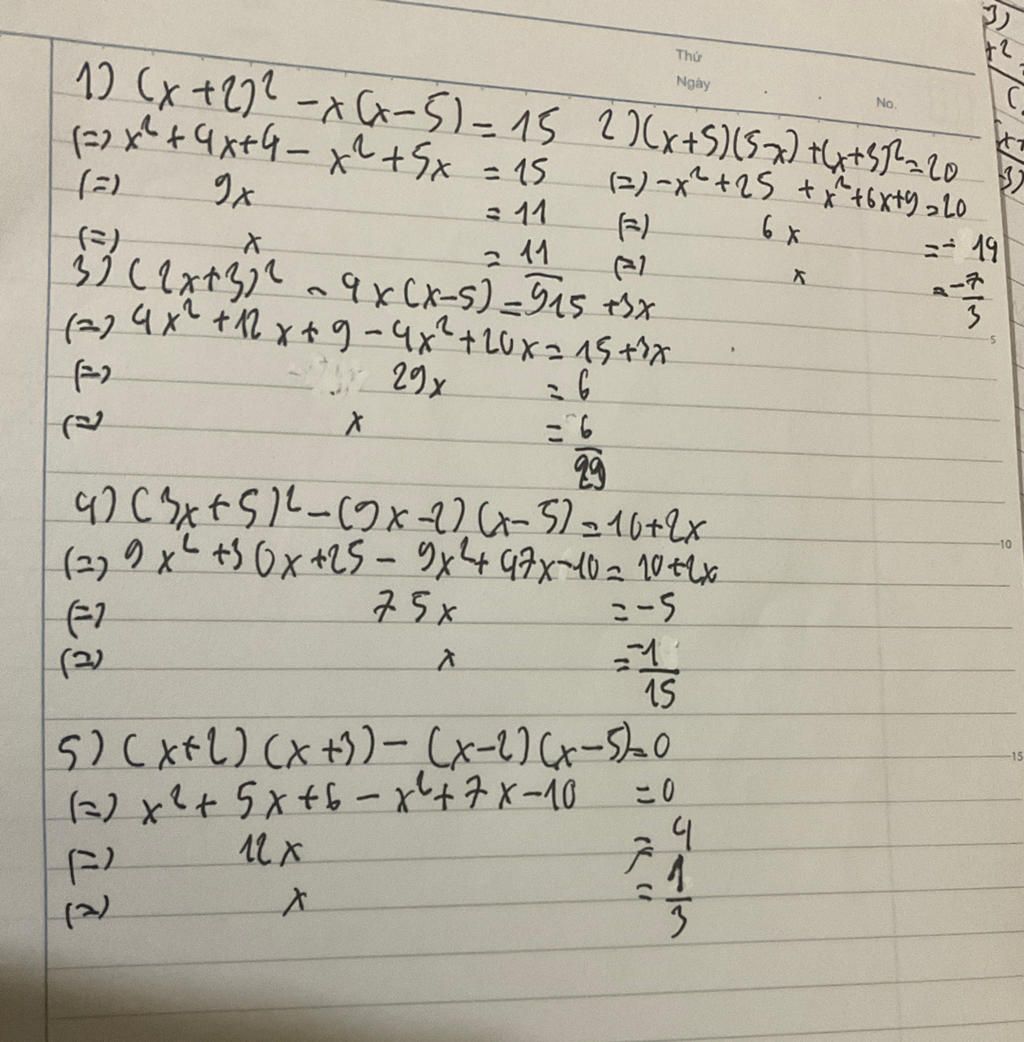 Thứ
Ngày
No.
1) (x+2)² - x(x-5) = 15
(=) x² + 4x + 4 - x² + 5x = 15
(=) 9x = 11
(=) x = 11/9
2) (x+5)(5-x) + (x+3)² = 20
(=) -x² + 25 + x² + 6x + 9 = 20
(=) 6x = -19
(=) x = -7/3
3) (2x+3)² - 4x(x-5) = 15 + 3x
(=) 4x² + 12x + 9 - 4x² + 20x = 15 + 3x
(=) 29x = 6
(=) x = 6/29
4) (3x+5)² - (9x-2)(x-5) = 10+2x
(=) 9x² + 30x + 25 - 9x² + 47x - 10 = 10+2x
(=) 75x = -5
(=) x = -1/15
5) (x+2)(x+3) - (x-2)(x-5) = 0
(=) x² + 5x + 6 - x² + 7x - 10 = 0
(=) 12x = 4
(=) x = 1/3
5
10
15
3)
+2
(
3)